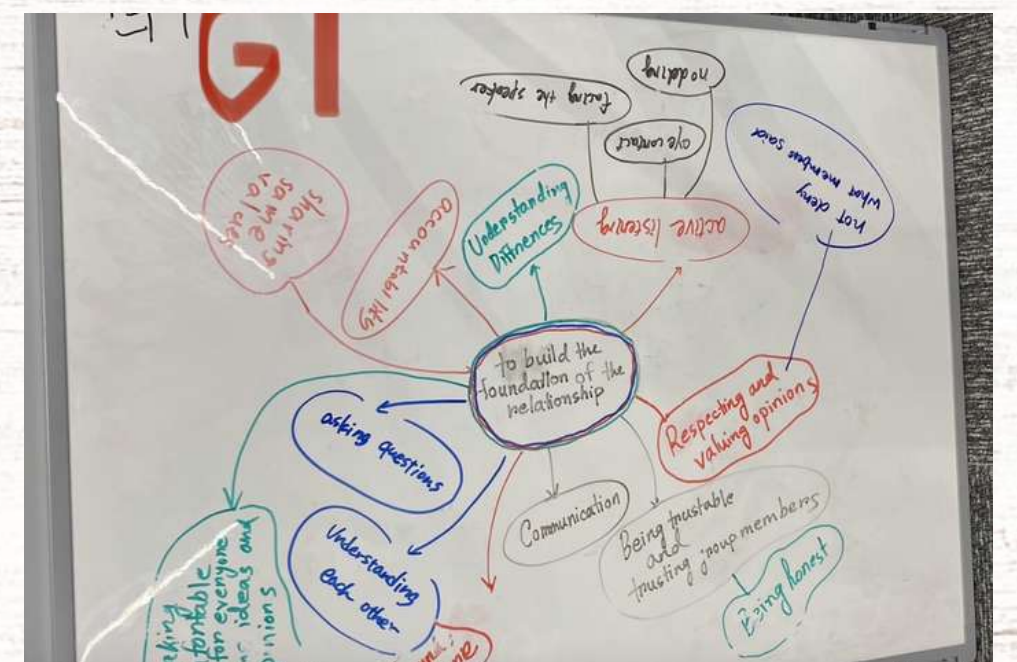 G1
nodding
facing the speaker
eye contact
not deny
what member said
sharing
same
values
accountability
Understanding
Diffrences
active listening
to build the
foundation of the
relationship
Respecting and
valuing opinions
asking questions
Communication
Being trustable
and
trusting group members
Being honest
Understanding
each other
for everyone
ideas and